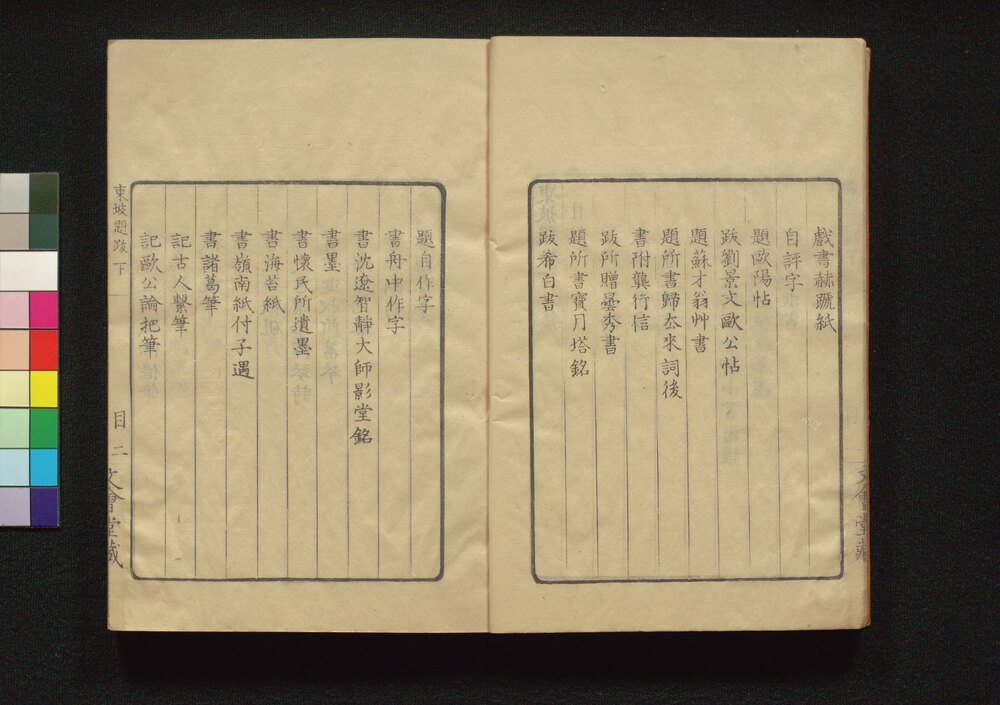 戲書赫蹏紙
自評字
題歐陽帖
跋劉景文歐公帖
題蘇才翁艸書
題所書歸厺來詞後
書附龔行信
跋所贈曇秀書
題所書寶月塔銘
跋希白書
文會堂藏
題自作字
書舟中作字
書沈遼智靜大師影堂銘
書墨
書懷民所遺墨
書海苔紙
書嶺南紙付子遇
書諸葛筆
記古人繫筆
記歐公論把筆
東坡題跋下
目
二
文會堂藏